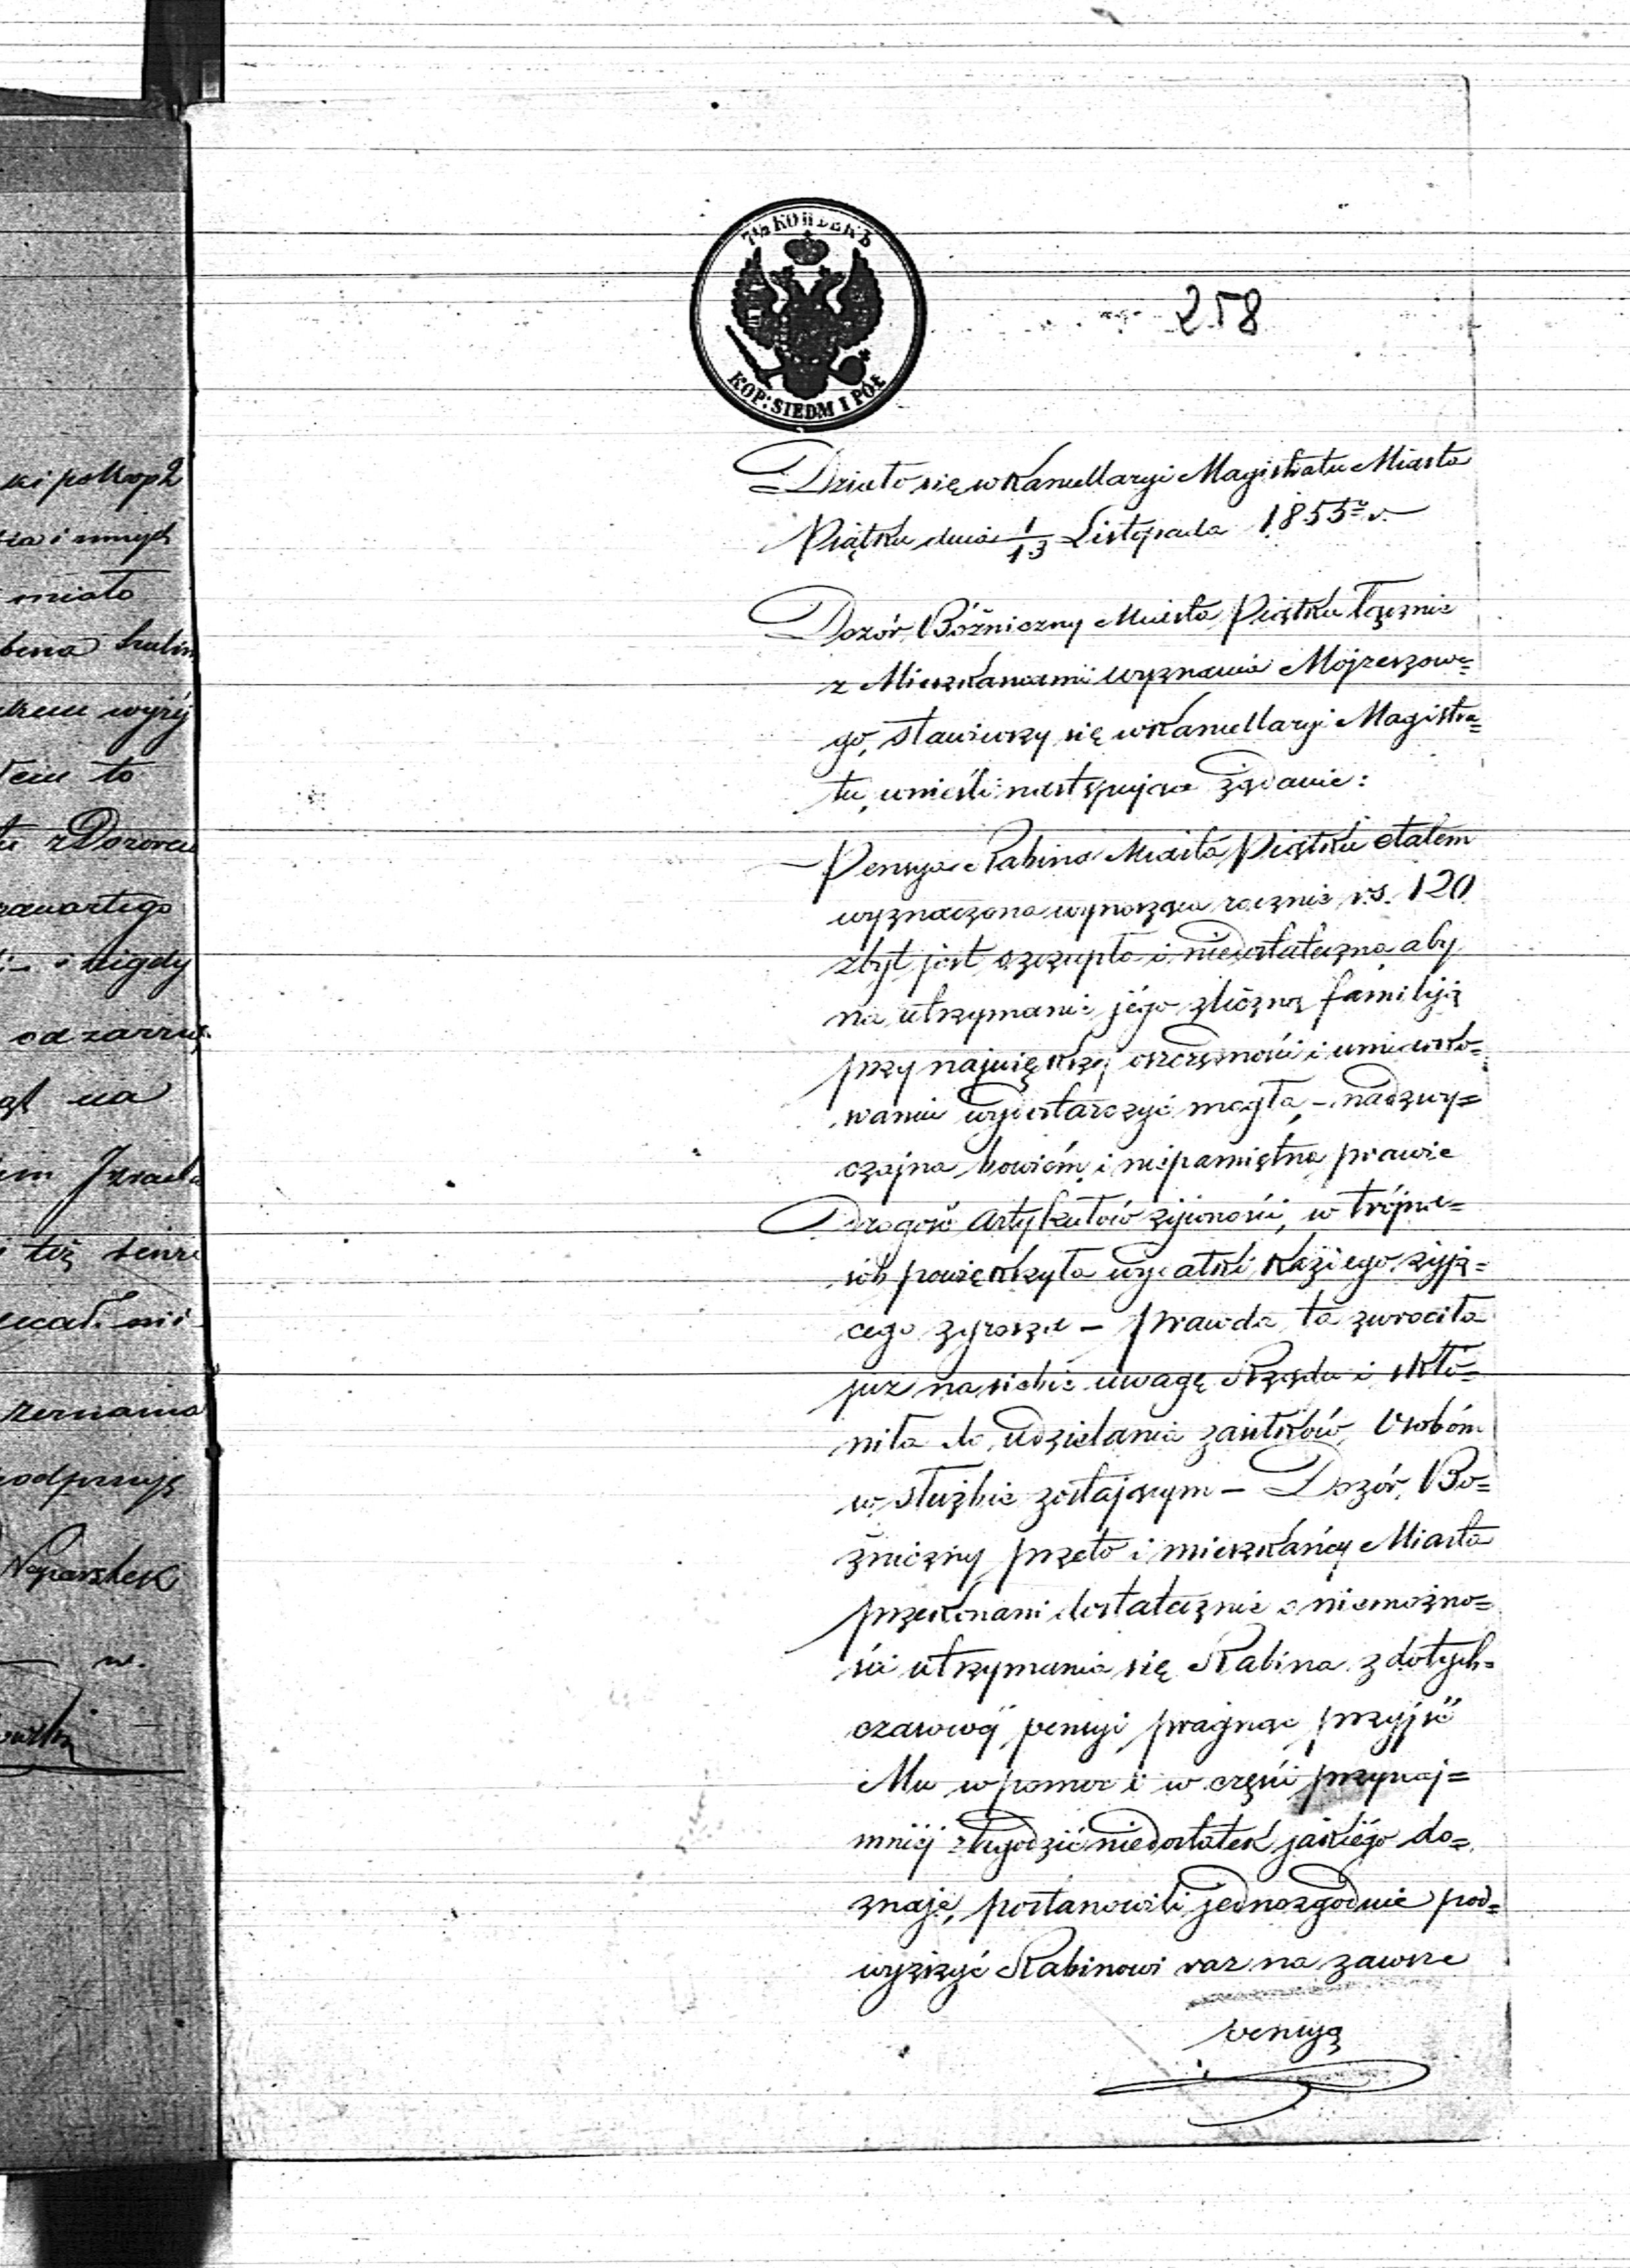 7½ КОПѢЕКЪ
KOP: SIEDM I PÓŁ
258
Działo się w Kancellaryi Magistratu Miasta
Piątku dnia 1/13 Listopada 1855 r.
Dozór Bóżniczny Miasta Piątku łącznie
z Mieszkańcami wyznania Mojżeszowe=
go, stawiwszy się w Kancellaryi Magistra=
tu, wnieśli następujące żądanie:
— Pensya Rabina Miasta Piątku etatem
wyznaczona wynosząca rocznie r.s. 120
zbyt jest szczupła i niedostateczna aby
na utrzymanie jego z liczną familiją
przy największej oszczędności i umiarko=
waniu wydostarczyć mogła, – nadzwy=
czajna bowiém i niepamiętna prawie
Drogość Artykułów żywności, w trójna=
sób powiększyła wydatki każdego żyją=
cego z grosza – prawda ta zwróciła
już na siebie uwagę Rządu i skło=
niła do udzielania zasiłków Osobóm
w służbie zostającym – Dozór Bo=
żniczny przeto i mieszkańcy Miasta
przekonani dostatecznie o niemożno=
ści utrzymania się Rabina z dotych=
czasowéj pensyi pragnąc przyjść
Mu w pomoc i w części przynaj=
mniéj złagodzić niedostatek jakiégo do=
znaje, postanowili jednozgodnie pod=
wyższyć Rabinowi raz na zawsze
pensyą
miało
tem to
zawartego
nigdy
na
też
zeznania
w.